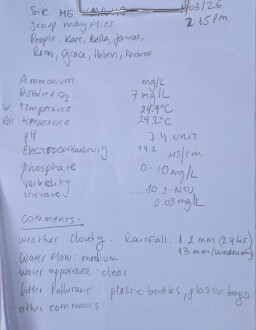 Site ME
03/26
group mayflies
2 15pm
People, Kate, Bella, James,
Grace, Helen, Andrea
Ammonium mg/L
Dissolved O2 7 mg/L
W temperature 24.9°C
Air temperature 24.2°C
pH 7.4 unit
Electroconductivity 142 µS/cm
phosphate 0.10 mg/L
Turbidity 10.5 NTU
Nitrate 0.03 mg/L
comments.
weather cloudy. Rainfall: 1.2 mm (24hr)
13 mm (wednesday)
Water Flow: medium
Water apperance: clear
Litter Pollutant: plastic bottles, plastic bags
other comments